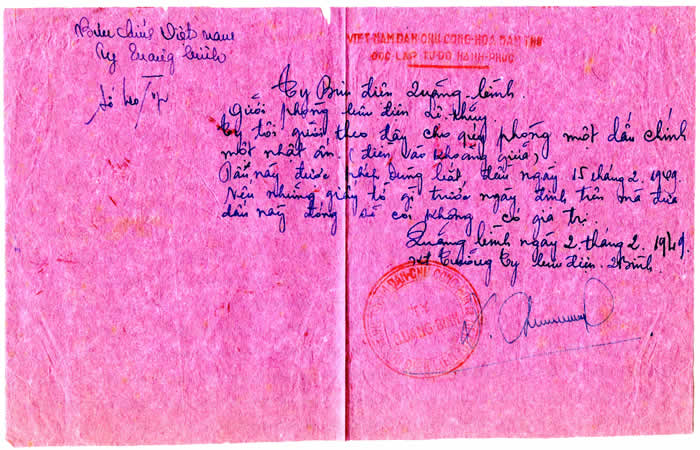 Bưu chính Việt nam
Ty Quảng bình
Số
VIỆT-NAM DÂN CHỦ CỘNG-HÒA DÂN THỨ
ĐỘC-LẬP TỰ-DO HẠNH-PHÚC
Ty Bưu điện Quảng bình.
gửi phòng bưu điện Lệ thủy.
Ty tôi gửi theo đây cho quý phòng một dấu chính
một nhật ấn. (điền vào khoảng giữa)
Dấu này được phép dùng bắt đầu ngày 15 tháng 2. 1949.
Nếu những giấy tờ gì trước ngày định trên mà đưa
dấu này đóng sẽ coi không có giá trị.
Quảng bình ngày 2. tháng 2. 1949.
Trưởng Ty bưu điện. QBình.
DÂN-CHỦ CỘNG-HÒA
QUẢNG BÌNH